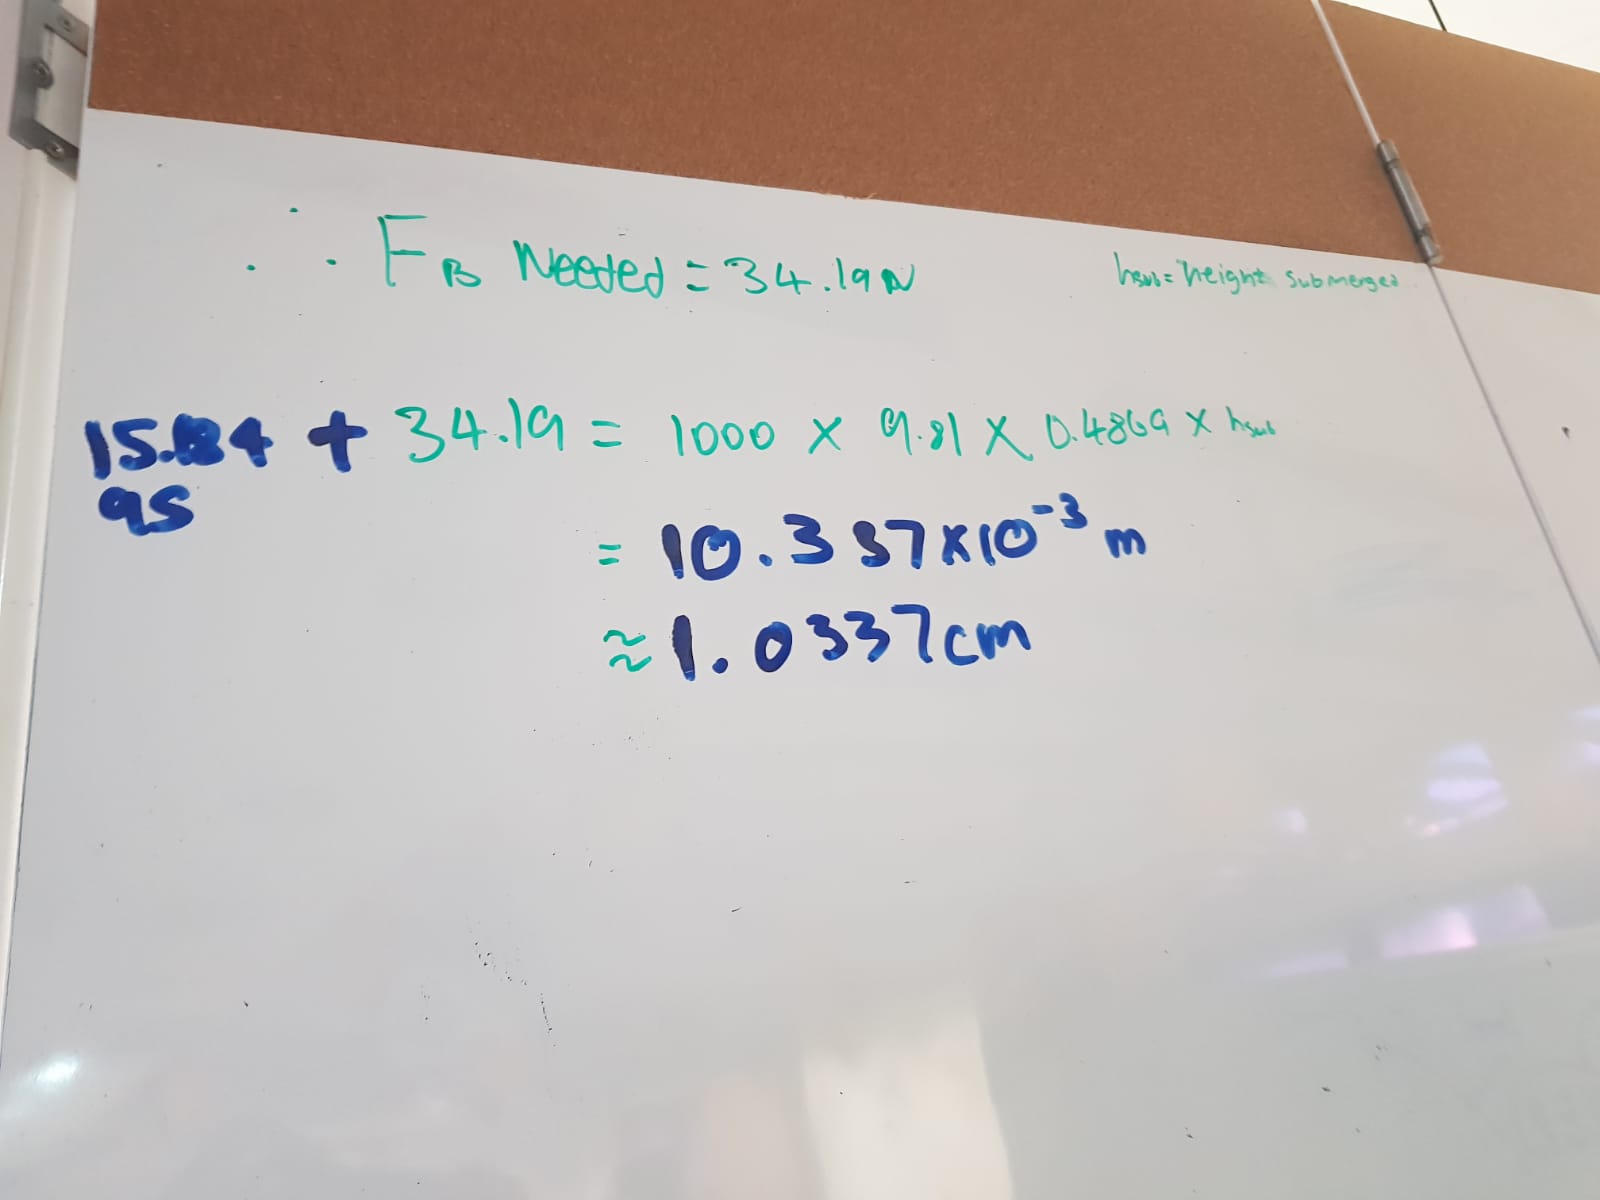 ∴ F_B Needed = 34.19N
h_sub = height submerged
+ 34.19 = 1000 × 9.81 × 0.4869 × h_sub
95
= 10.337×10⁻³ m
≈ 1.0337cm